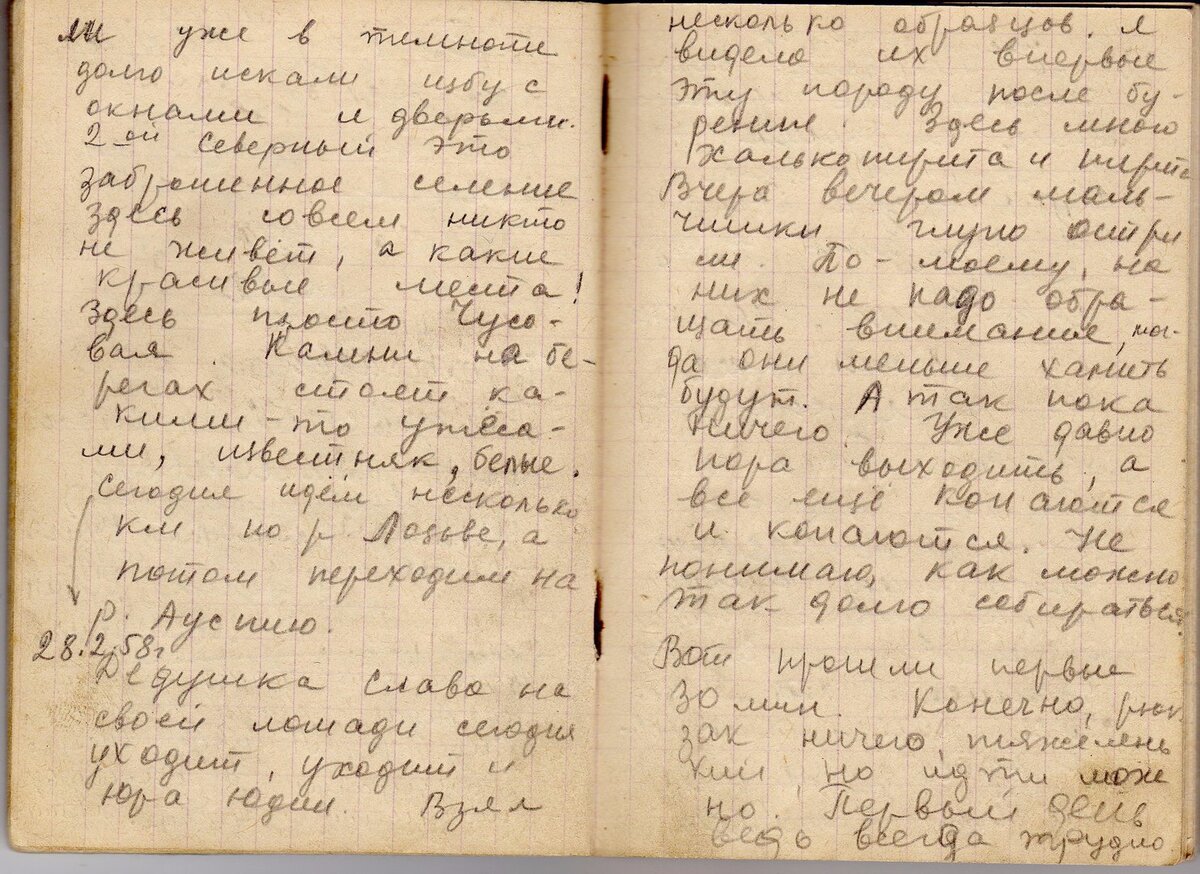 ли уже в темноте
долго искали избу с
окнами и дверьми.
2-ой Северный это
заброшенное селение
Здесь совсем никто
не живёт, а какие
красивые места!
Здесь просто Чусо-
вая. Камни на бе-
регах стоят ка-
кими-то ужеса-
ми, известняк, белые.
Сегодня идём несколько
км по р. Лозьве, а
потом переходим на
р. Ауспию.
28.2.58г
Дедушка Слава на
своей лошади сегодня
уходит, уходит и
Юра Юдин. Взял
несколько образцов. Я
видела их впервые
эту породу после бу-
рение. Здесь много
халькопирита и пирита
Вчера вечером маль-
чишки глупо остри
ли. По-моему, на
них не надо обра-
щать внимания, тог-
да они меньше хамить
будут. А так пока
ничего. Уже давно
пора выходить, а
все ещё копаются
и копаются. Не
понимаю, как можно
так долго собираться.
Вот прошли первые
30 мин. Конечно, рюк
зак ничего, тяжелень
кий, но идти мож
но. Первый день
ведь всегда трудно